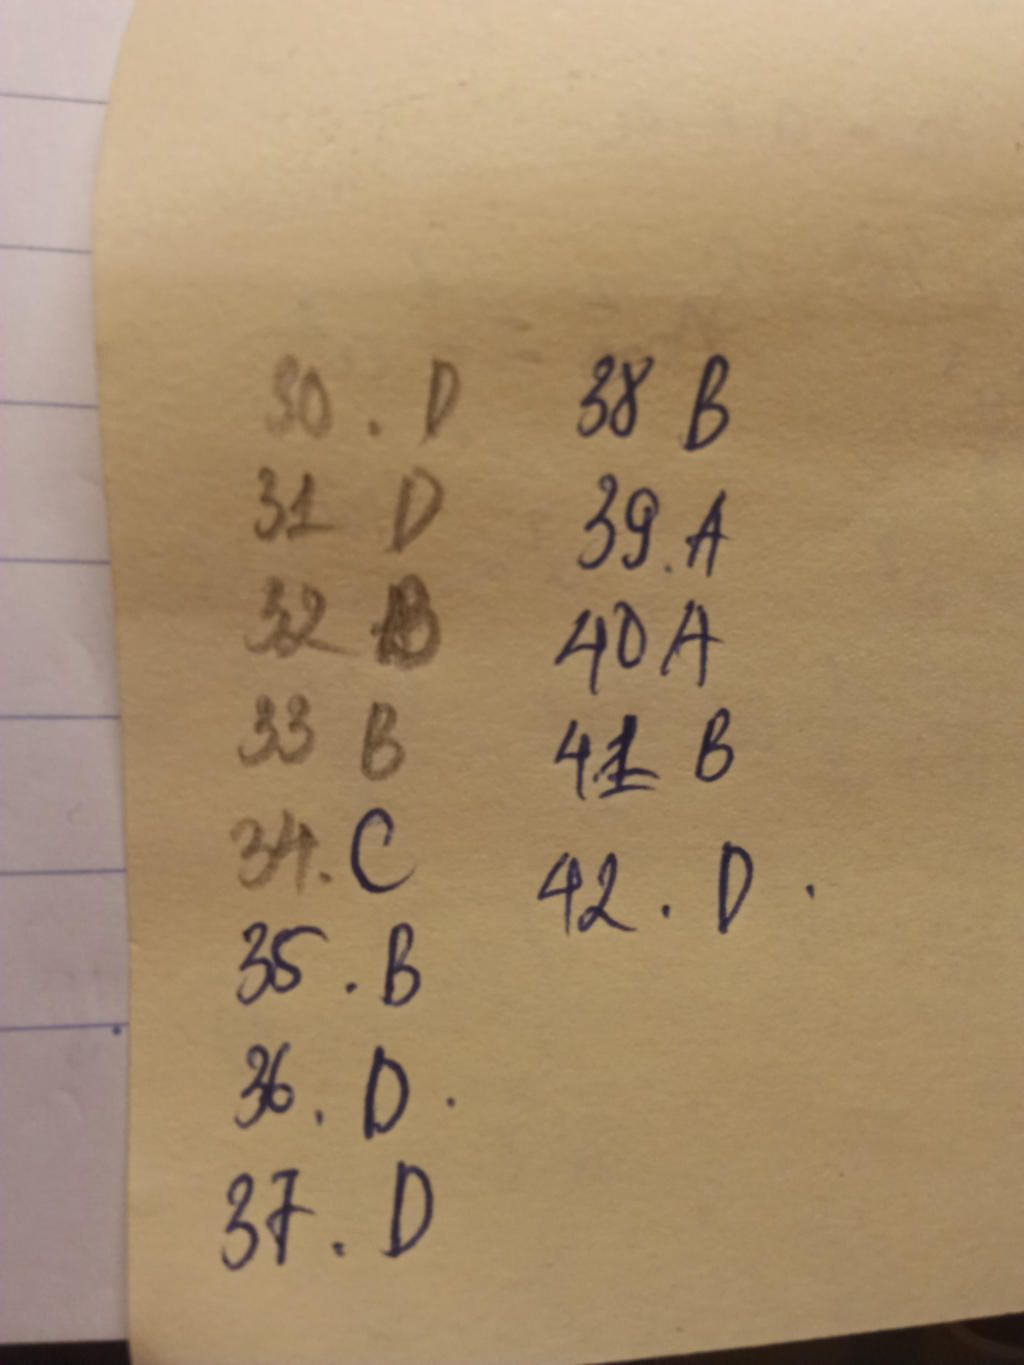 30. D
31 D
32 B
33 B
34. C
35. B
36. D.
37. D
38 B
39. A
40 A
41 B
42. D.